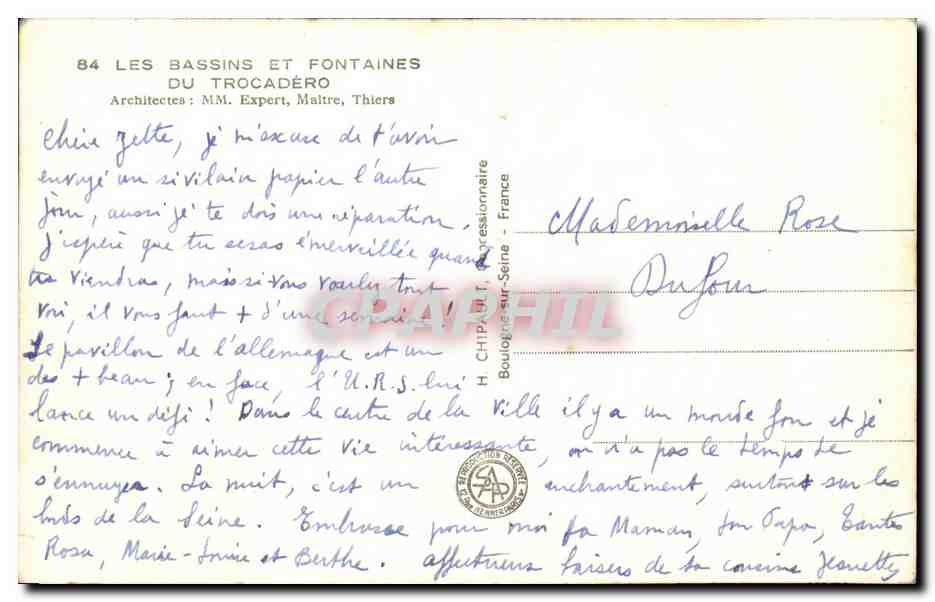 84 LES BASSINS ET FONTAINES
DU TROCADÉRO
Architectes : MM. Expert, Maître, Thiers
Chère Zette, je m'excuse de t'avoir
envoyé un si vilain papier l'autre
jour, aussi je te dois une réparation.
J'espère que tu seras émerveillée quand
tu viendras, mais si vous voulez tout
voir, il vous faut + d'une semaine !
Le pavillon de l'allemagne est un
des + beau ; en face, l'U.R.S. lui
lance un défi ! Dans le centre de la ville il y a un monde fou et je
commence à aimer cette vie intéressante, on n'a pas le temps de
s'ennuyer. La nuit, c'est un enchantement, surtout sur les
bords de la Seine. Embrasse pour moi ta Maman, ton Papa, Tantes
Rosa, Marie-Louise et Berthe. affectueux baisers de ta cousine Jeanette
H. CHIPAULT, Concessionnaire
Boulogne-sur-Seine - France
Mademoiselle Rose
Dufour
CPAPHIL
REPRODUCTION RÉSERVÉE
SAPP